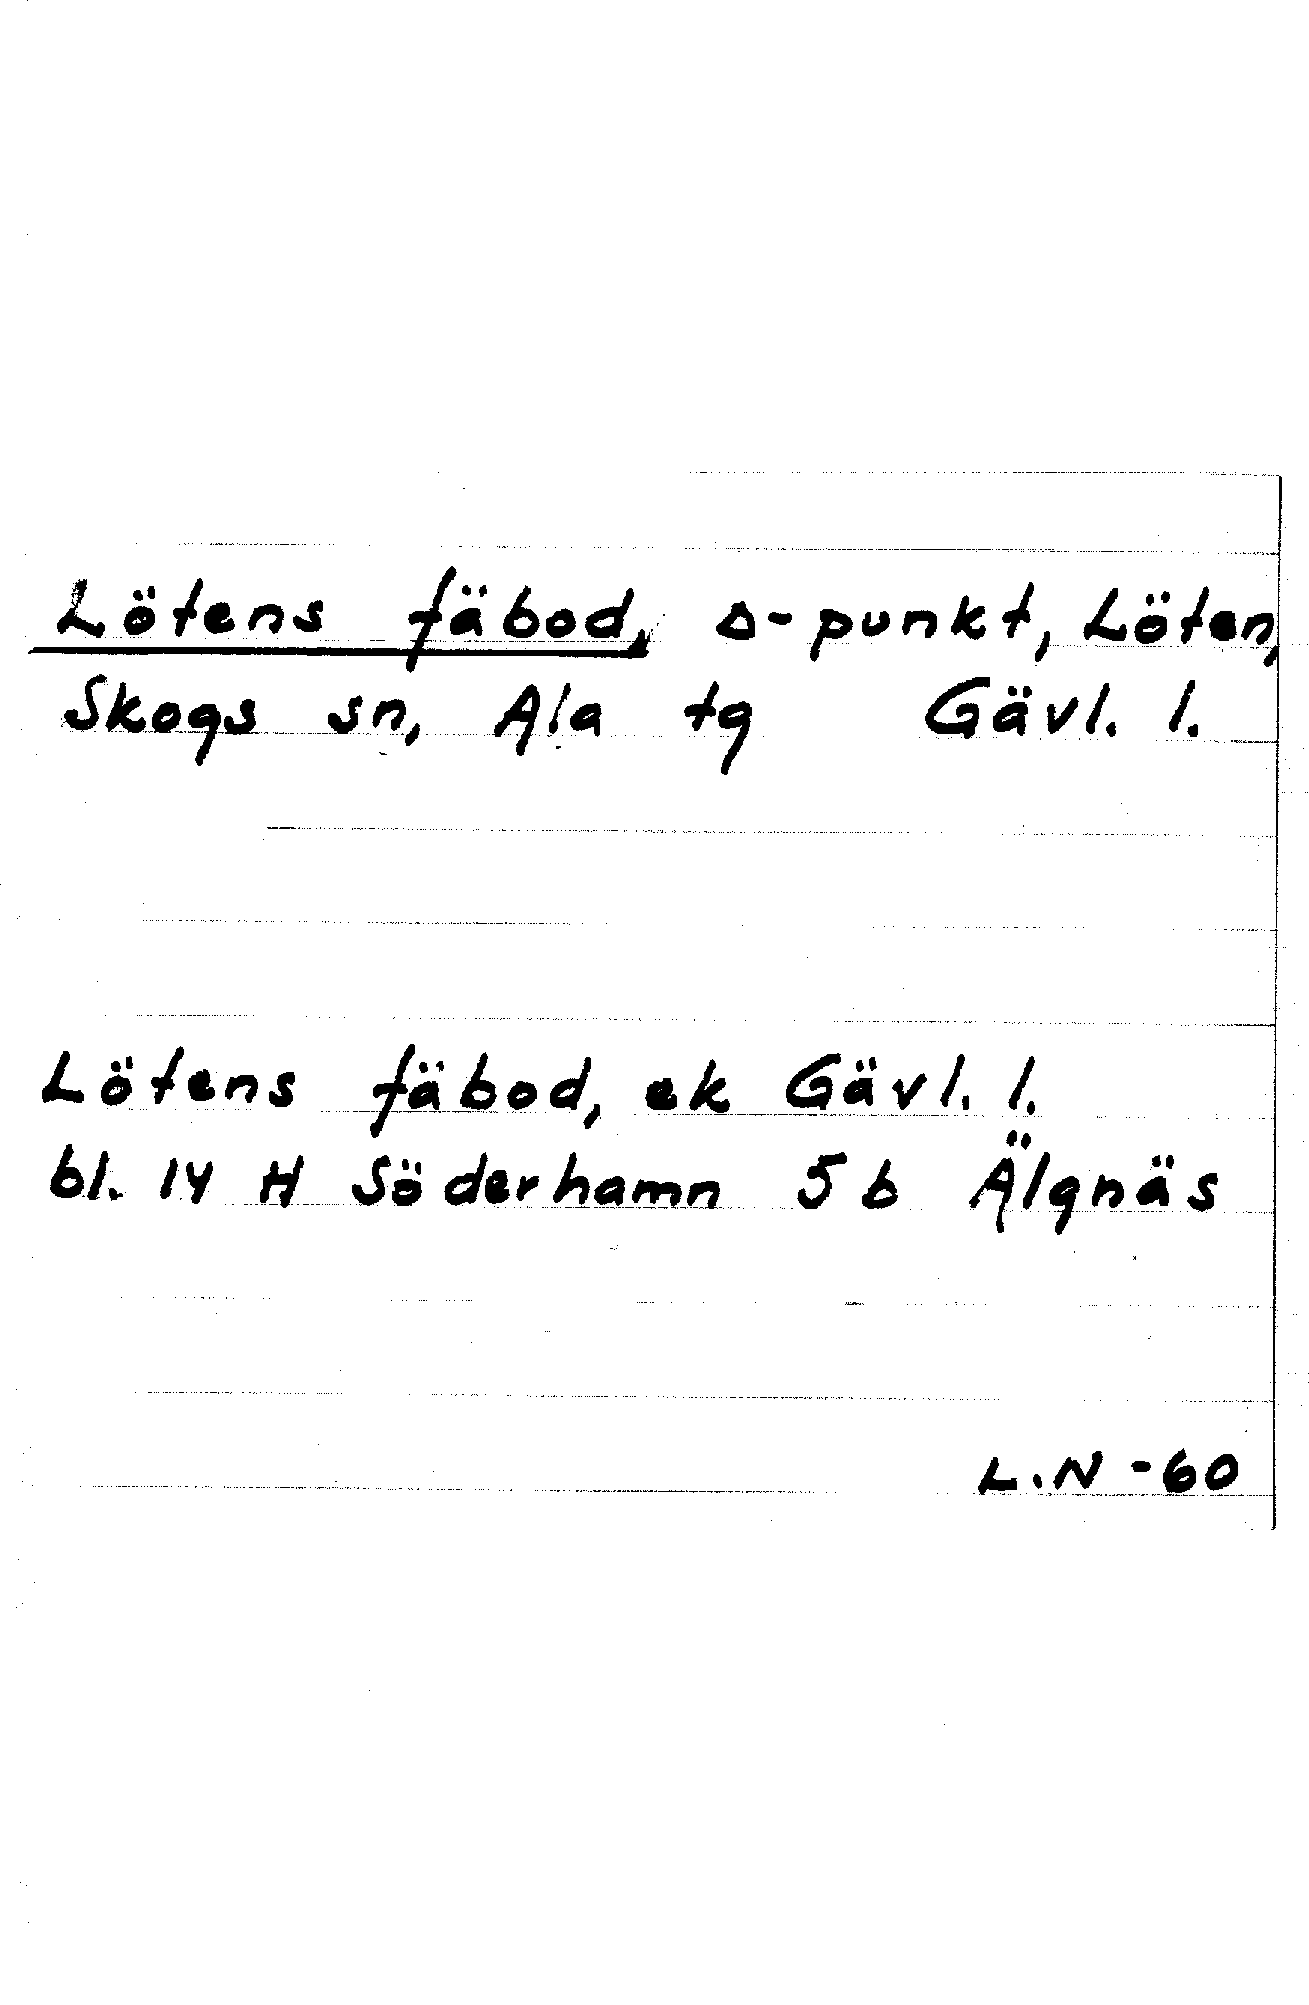 Lötens fäbod, Δ-punkt, Löten,
Skogs sn, Ala tg Gävl. l.
Lötens fäbod, ek Gävl. l.
bl. 14 H Söderhamn 5 b Älgnäs
L.N -60